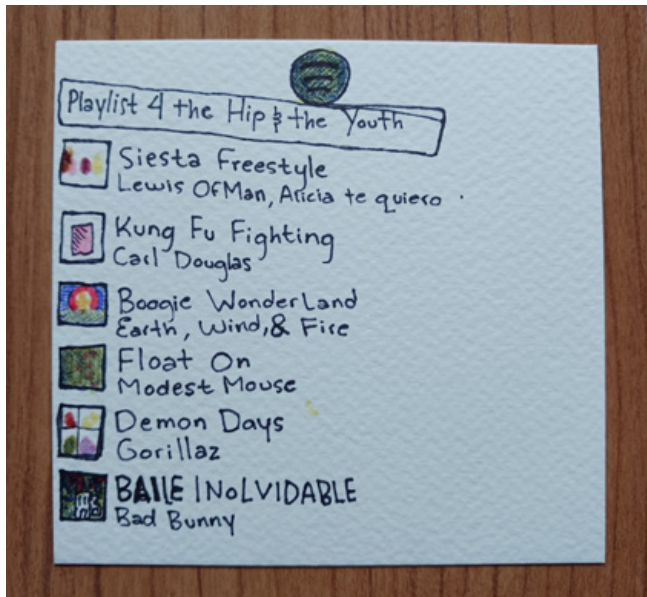 Playlist 4 the Hip & the Youth
Siesta Freestyle
Lewis OfMan, Alicia te quiero
Kung Fu Fighting
Carl Douglas
Boogie Wonderland
Earth, Wind, & Fire
Float On
Modest Mouse
Demon Days
Gorillaz
BAILE INoLVIDABLE
Bad Bunny